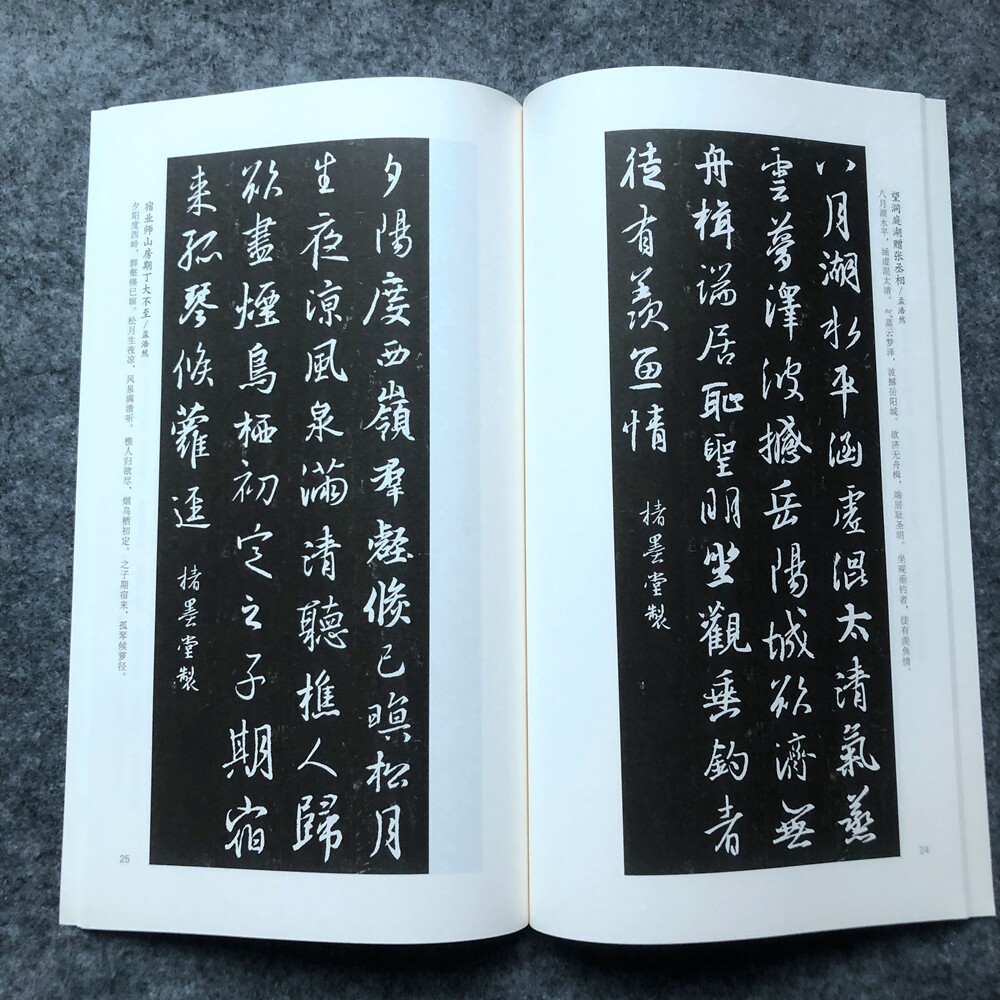 望洞庭湖赠张丞相/孟浩然
八月湖水平，涵虚混太清。气蒸云梦泽，波撼岳阳城。欲济无舟楫，端居耻圣明。坐观垂钓者，徒有羡鱼情。
八月湖水平涵虛混太清氣蒸
雲夢澤波撼岳陽城欲濟無
舟楫端居恥聖明坐觀垂釣者
徒有羨魚情
楮墨堂製
24
宿业师山房期丁大不至/孟浩然
夕阳度西岭，群壑倏已暝。松月生夜凉，风泉满清听。樵人归欲尽，烟鸟栖初定。之子期宿来，孤琴候萝径。
夕陽度西嶺羣壑倏已暝松月
生夜涼風泉滿清聽樵人歸
欲盡煙鳥栖初定之子期宿
来孤琴候蘿逕
楮墨堂製
25